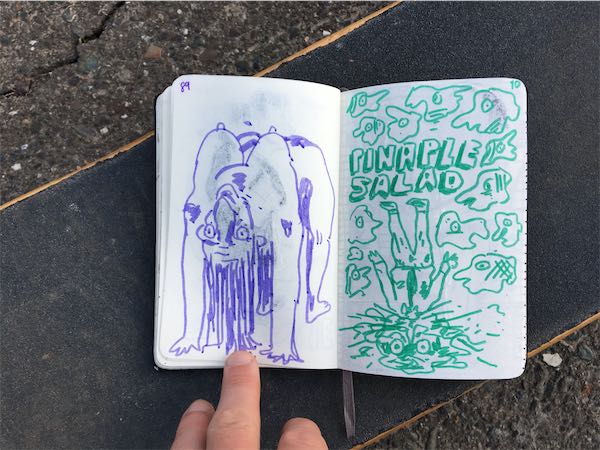 89
90
PINAPLE
SALAD